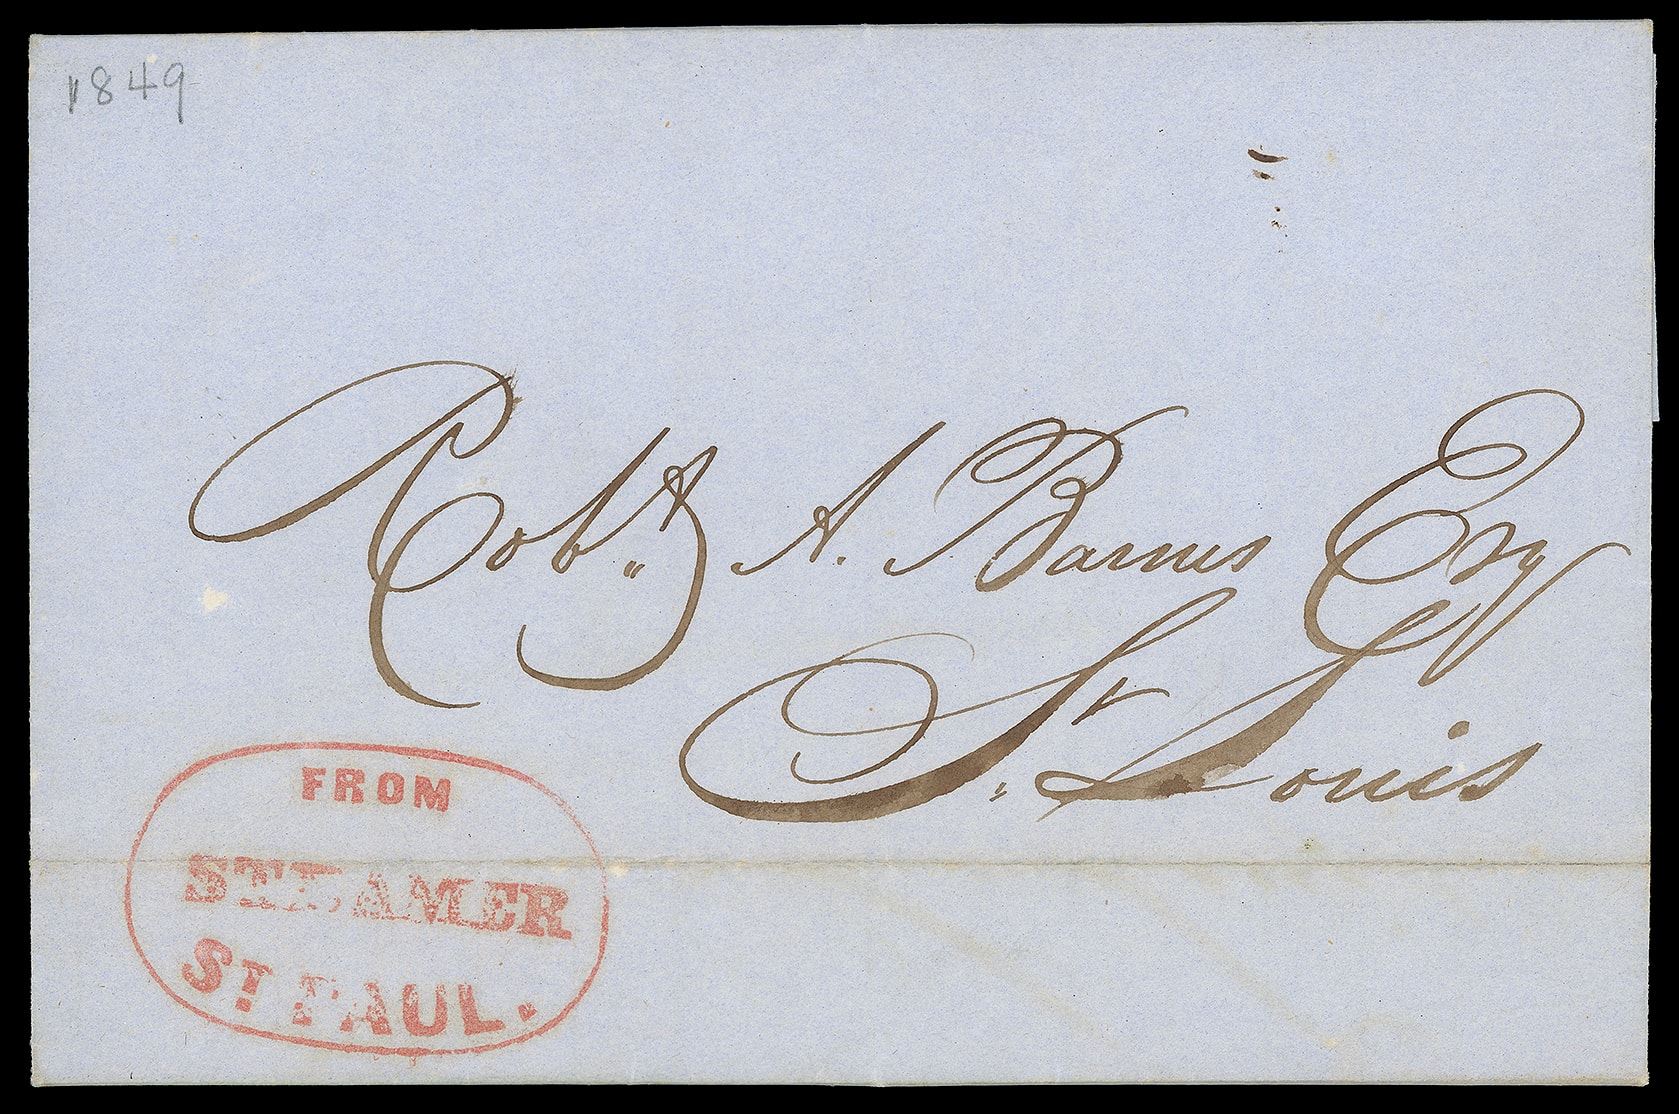 1849
Robt. A. Barnes Esq
St. Louis
FROM
STEAMER
ST. PAUL.